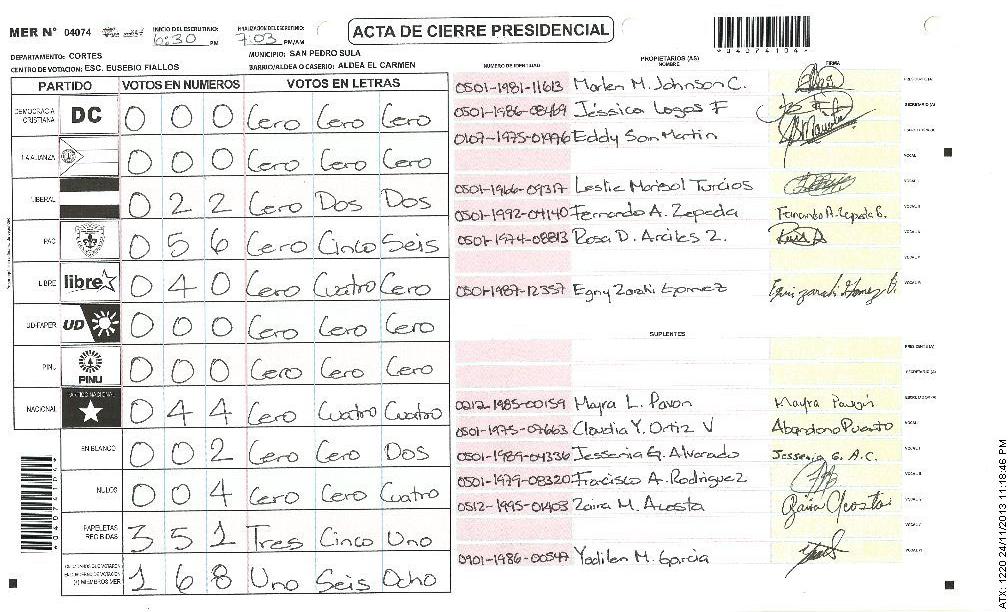 MER N° 04074
INICIO DEL ESCRUTINIO: 6:30 PM
FINALIZACION DEL ESCRUTINIO: 7:03 PM/AM
ACTA DE CIERRE PRESIDENCIAL
*04074104*
DEPARTAMENTO: CORTES
MUNICIPIO: SAN PEDRO SULA
CENTRO DE VOTACION: ESC. EUSEBIO FIALLOS
BARRIO/ALDEA O CASERIO: ALDEA EL CARMEN
PARTIDO VOTOS EN NUMEROS VOTOS EN LETRAS
DEMOCRACIA CRISTIANA DC 0 0 0 Cero Cero Cero
LA ALIANZA 0 0 0 Cero Cero Cero
LIBERAL 0 2 2 Cero Dos Dos
PAC 0 5 6 Cero Cinco Seis
LIBRE libre 0 4 0 Cero Cuatro Cero
UD-FAPER UD 0 0 0 Cero Cero Cero
PINU PINU 0 0 0 Cero Cero Cero
NACIONAL PARTIDO NACIONAL 0 4 4 Cero Cuatro Cuatro
EN BLANCO 0 0 2 Cero Cero Dos
NULOS 0 0 4 Cero Cero Cuatro
PAPELETAS RECIBIDAS 3 5 1 Tres Cinco Uno
1 6 8 Uno Seis Ocho
PROPIETARIOS (AS)
NUMERO DE IDENTIDAD NOMBRE FIRMA
0501-1981-11613 Marlen M. Johnson C. PRESIDENTE(A)
0501-1986-08469 Jéssica Lagos F SECRETARIO (A)
0107-1975-01996 Eddy San Martin ESCRUTADOR(A)
VOCAL
0501-1966-09317 Leslie Marisol Turcios VOCAL
0501-1992-04140 Fernando A. Zepeda Fernando A. Zepeda VOCAL
0501-1974-08813 Rosa D. Arciles Z. Rosa A VOCAL
VOCAL
0501-1987-12357 Egny Zarahi Gomez VOCAL
SUPLENTES
PRESIDENTE(A)
SECRETARIO (A)
0212-1985-00159 Mayra L. Pavon Mayra Pavón ESCRUTADOR(A)
0501-1975-07663 Claudia Y. Ortiz V Abandono Puesto VOCAL
0501-1989-04336 Jessenia G. Alvarado Jessenia G. A.C. VOCAL
0501-1979-08320 Francisco A. Rodriguez VOCAL
0512-1995-01403 Zaira M. Acosta Zaira Acosta VOCAL
VOCAL
0901-1986-00547 Yadilen M. Garcia VOCAL
ATX: 1220 24/11/2013 11:18:46 PM